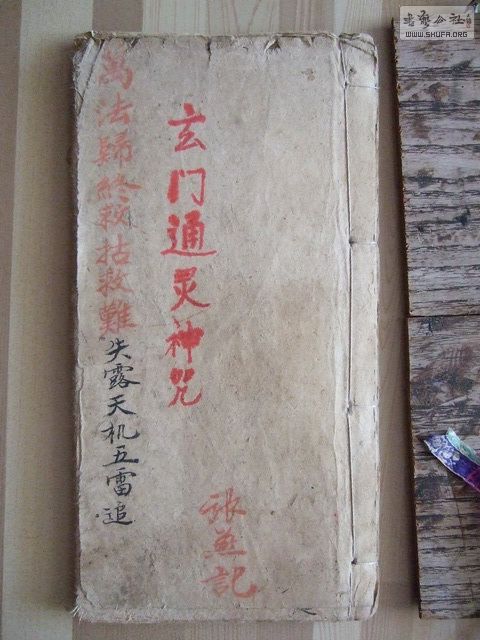 玄门通灵神咒
萬法歸終救拈救難
失露天机五雷追
張
記
书法公社
WWW.SHUFA.ORG